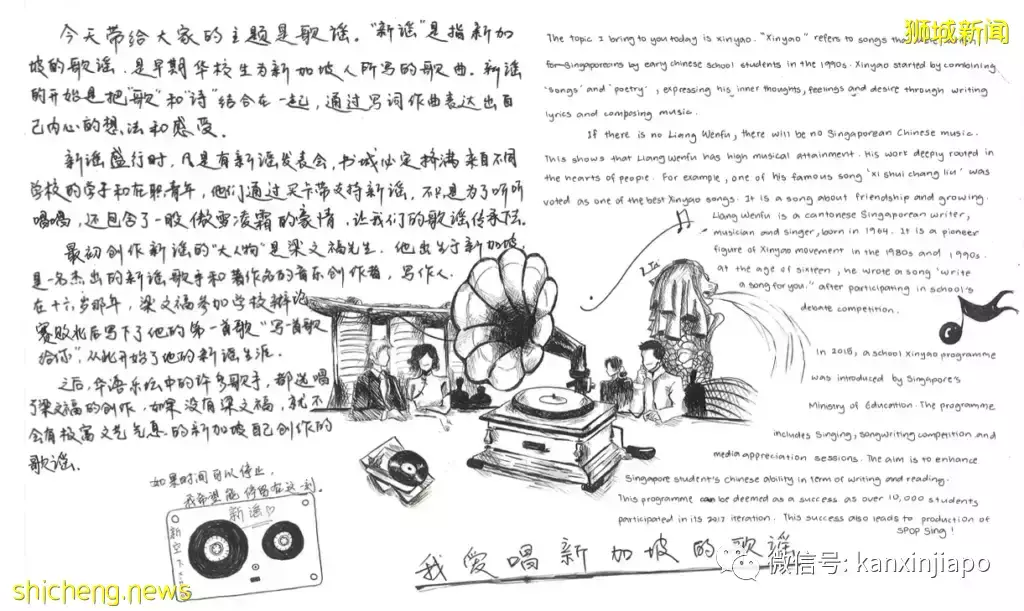 今天带给大家的主题是歌谣。"新谣"是指新加
坡的歌谣，是早期华校生为新加坡人所写的歌曲。新谣
的开始是把"歌"和"诗"结合在一起，通过写词作曲表达出自
己内心的想法和感受。
新谣盛行时，凡是有新谣发表会，书城必定挤满来自不同
学校的学子和在职青年，他们通过买卡带支持新谣，不只是为了听听
唱唱，还包含了一股傲雪凌霜的豪情，让我们的歌谣传承下去。
最初创作新谣的"大人物"是梁文福先生。他出生于新加坡
是一名杰出的新谣歌手和著作名的音乐创作者，写作人.
在十六岁那年，梁文福参加学校辩论
赛败北后写下了他的第一首歌"写一首歌
给你"，从此开始了他的新谣生涯.
之后，华语乐坛中的许多歌手，都选唱
了梁文福的创作，如果没有梁文福，就不
会有较富文艺气息的新加坡自己创作的
歌谣.
如果时间可以停止，
我希望能停留在这一刻.
新谣
新空下
我爱唱新加坡的歌谣
狮城新闻
The topic I bring to you today is xinyao. "Xinyao" refers to songs that were
for Singaporeans by eary chinese school students in the 1990s. Xinyao started by combining
'songs' and 'poetry', expressing his inner thoughts, feelings and desire through writing
lyrics and composing music.
If there is no Liang Wenfu, there will be no Singaporean Chinese music.
This shows that Liang Wenfu has high musical attainment. His work deeply rooted in
the hearts of people. For example, one of his famous song 'xi shui chang liu' was
voted as one of the best Xinyao songs. It is a song about friendship and growing.
Liang Wenfu is a cantonese Singaporean writer,
musician and singer, born in 1964. It is a pioneer
figure of Xinyao movement in the 1980s and 1990s.
at the age of sixteen, he wrote a song 'write
a song for you." after participating in school's
debate competition.
In 2015, a school Xinyao programme
was introduced by Singapore's
Ministry of Education. The programme
includes Singing, songwriting competition and
media appreciation sessions. The aim is to enhance
Singapore student's Chinese ability in term of writing and reading.
This programme can be deemed as a success as over 10,000 students
participated in its 2017 iteration. This success also leads to production of
SPOP Sing!
微信号: kanxinjiapo
shicheng.news